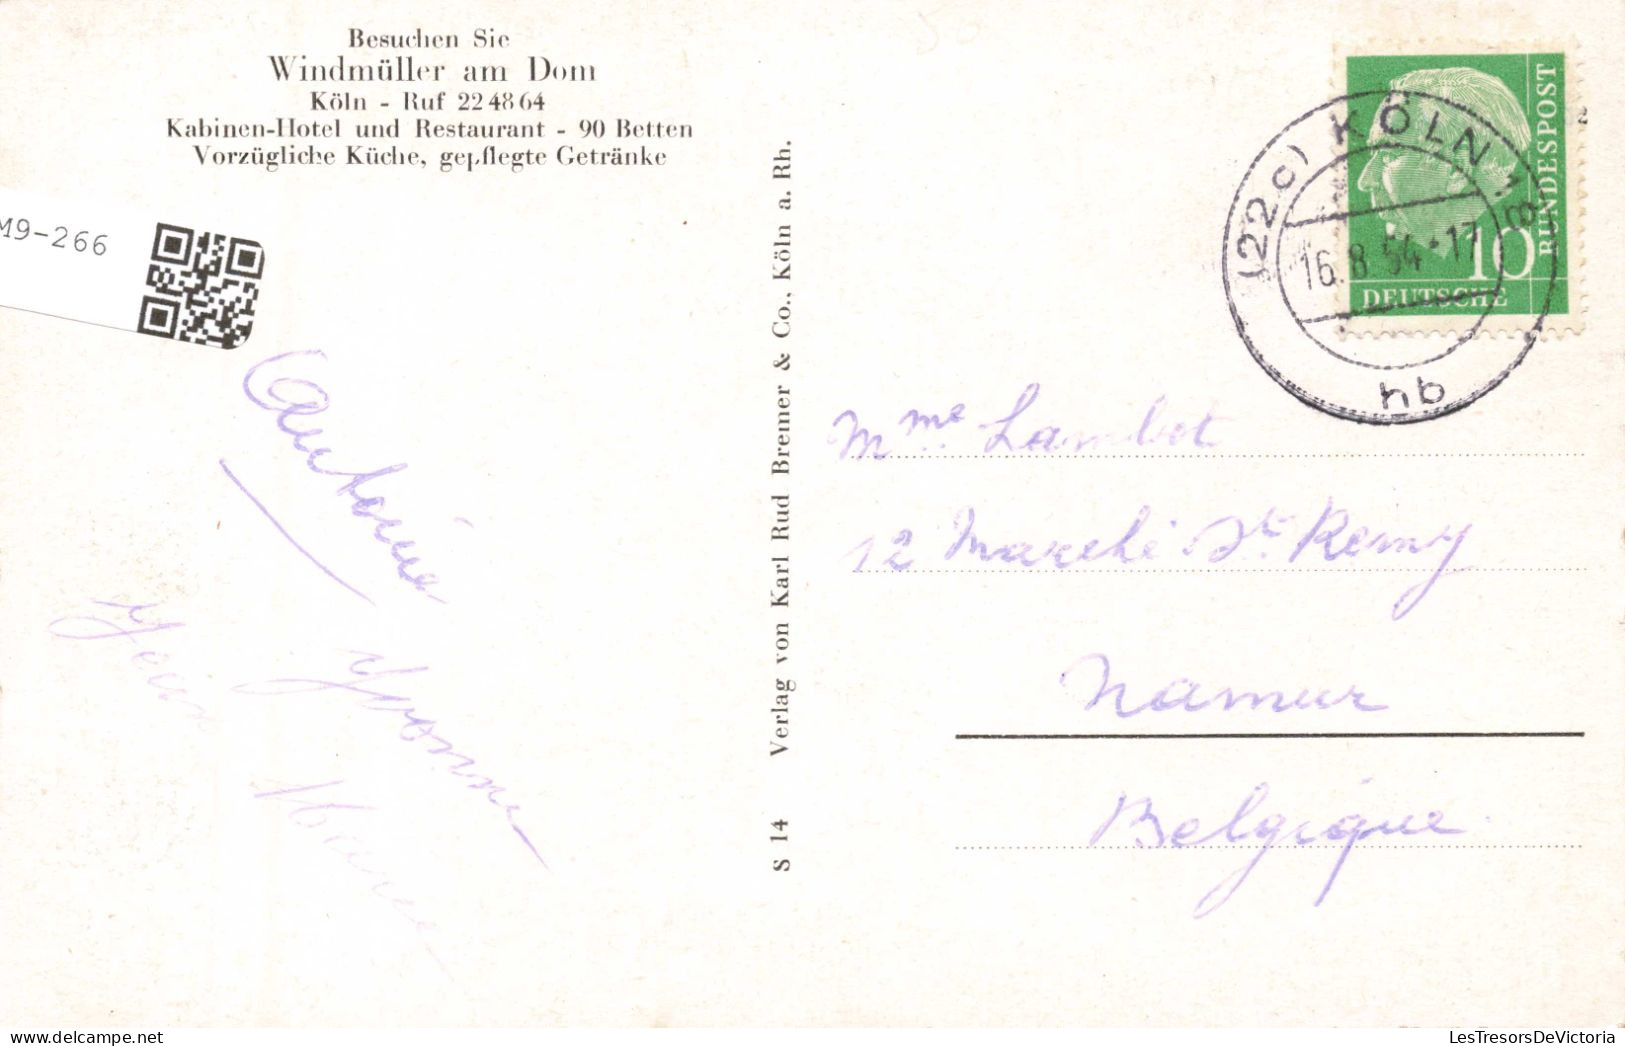 Besuchen Sie
Windmüller am Dom
Köln - Ruf 22 48 64
Kabinen-Hotel und Restaurant - 90 Betten
Vorzügliche Küche, gepflegte Getränke
M9-266
Antoine
Yvonne
Verlag von Karl Rud Bremer & Co., Köln a. Rh.
S 14
DEUTSCHE
BUNDESPOST
10
(22c) KÖLN
16.8.54.17
hb
2
Mme. Lambot
12 Marché St Remy
Namur
Belgique
LesTresorsDeVictoria
delcampe.net